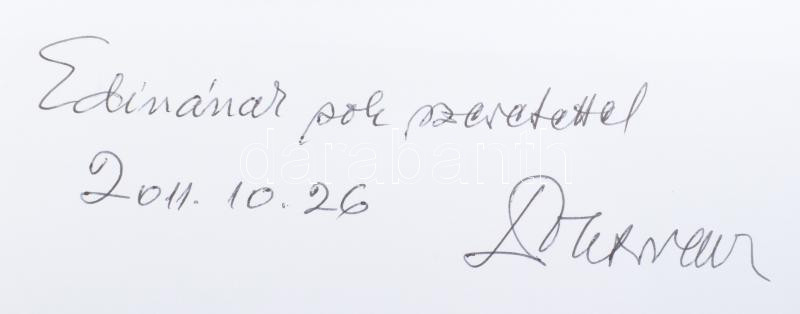 Edinának sok szeretettel
darabanth
2011. 10. 26